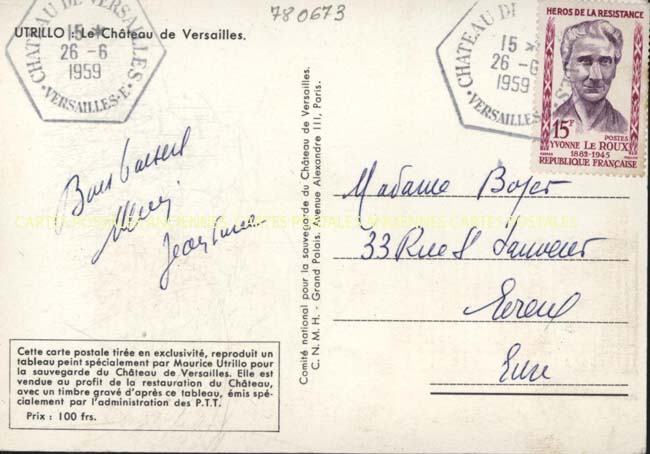 780673
UTRILLO : Le Château de Versailles.
CHATEAU DE VERSAILLES
15 *
26 - 6
1959
• VERSAILLES - E •
CHATEAU DE
15 *
26 - 6
1959
• VERSAILLES
HEROS DE LA RESISTANCE
15F
POSTES
YVONNE LE ROUX
1882-1945
REPUBLIQUE FRANÇAISE
Bons baisers
Jeannine
Comité national pour la sauvegarde du Château de Versailles.
C. N. M. H. - Grand Palais. Avenue Alexandre III, Paris.
Madame Boyer
33 Rue St Sauveur
Evreux
Eure
CARTES POSTALES ANCIENNES CARTES POSTALES ANCIENNES CARTES POSTALES
Cette carte postale tirée en exclusivité, reproduit un
tableau peint spécialement par Maurice Utrillo pour
la sauvegarde du Château de Versailles. Elle est
vendue au profit de la restauration du Château,
avec un timbre gravé d'après ce tableau, émis spé-
cialement par l'administration des P.T.T.
Prix : 100 frs.